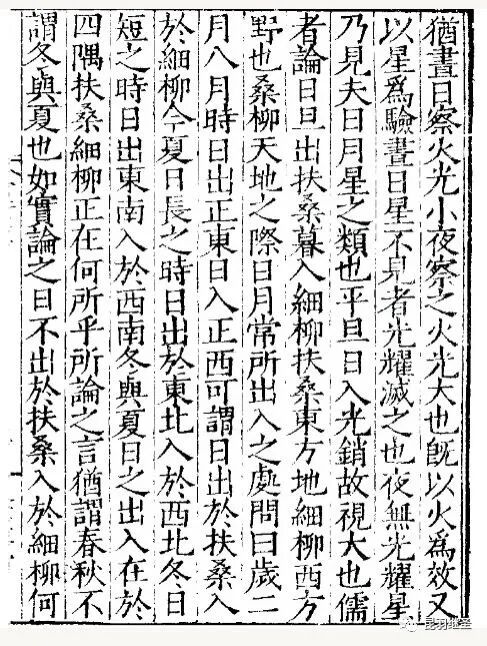 猶晝日察火光小夜察之火光大也旣以火爲效又
以星爲驗晝日星不見者光耀滅之也夜無光耀星
乃見夫日月星之類也平旦日入光銷故視大也儒
者論日旦出扶桑暮入細柳扶桑東方地細柳西方
野也桑柳天地之際日月常所出入之處問曰歲二
月八月時日出正東日入正西可謂日出於扶桑入
於細柳今夏日長之時日出於東北入於西北冬日
短之時日出東南入於西南冬與夏日之出入在於
四隅扶桑細柳正在何所乎所論之言猶謂春秋不
謂冬與夏也如實論之日不出於扶桑入於細柳何
昆羽继圣